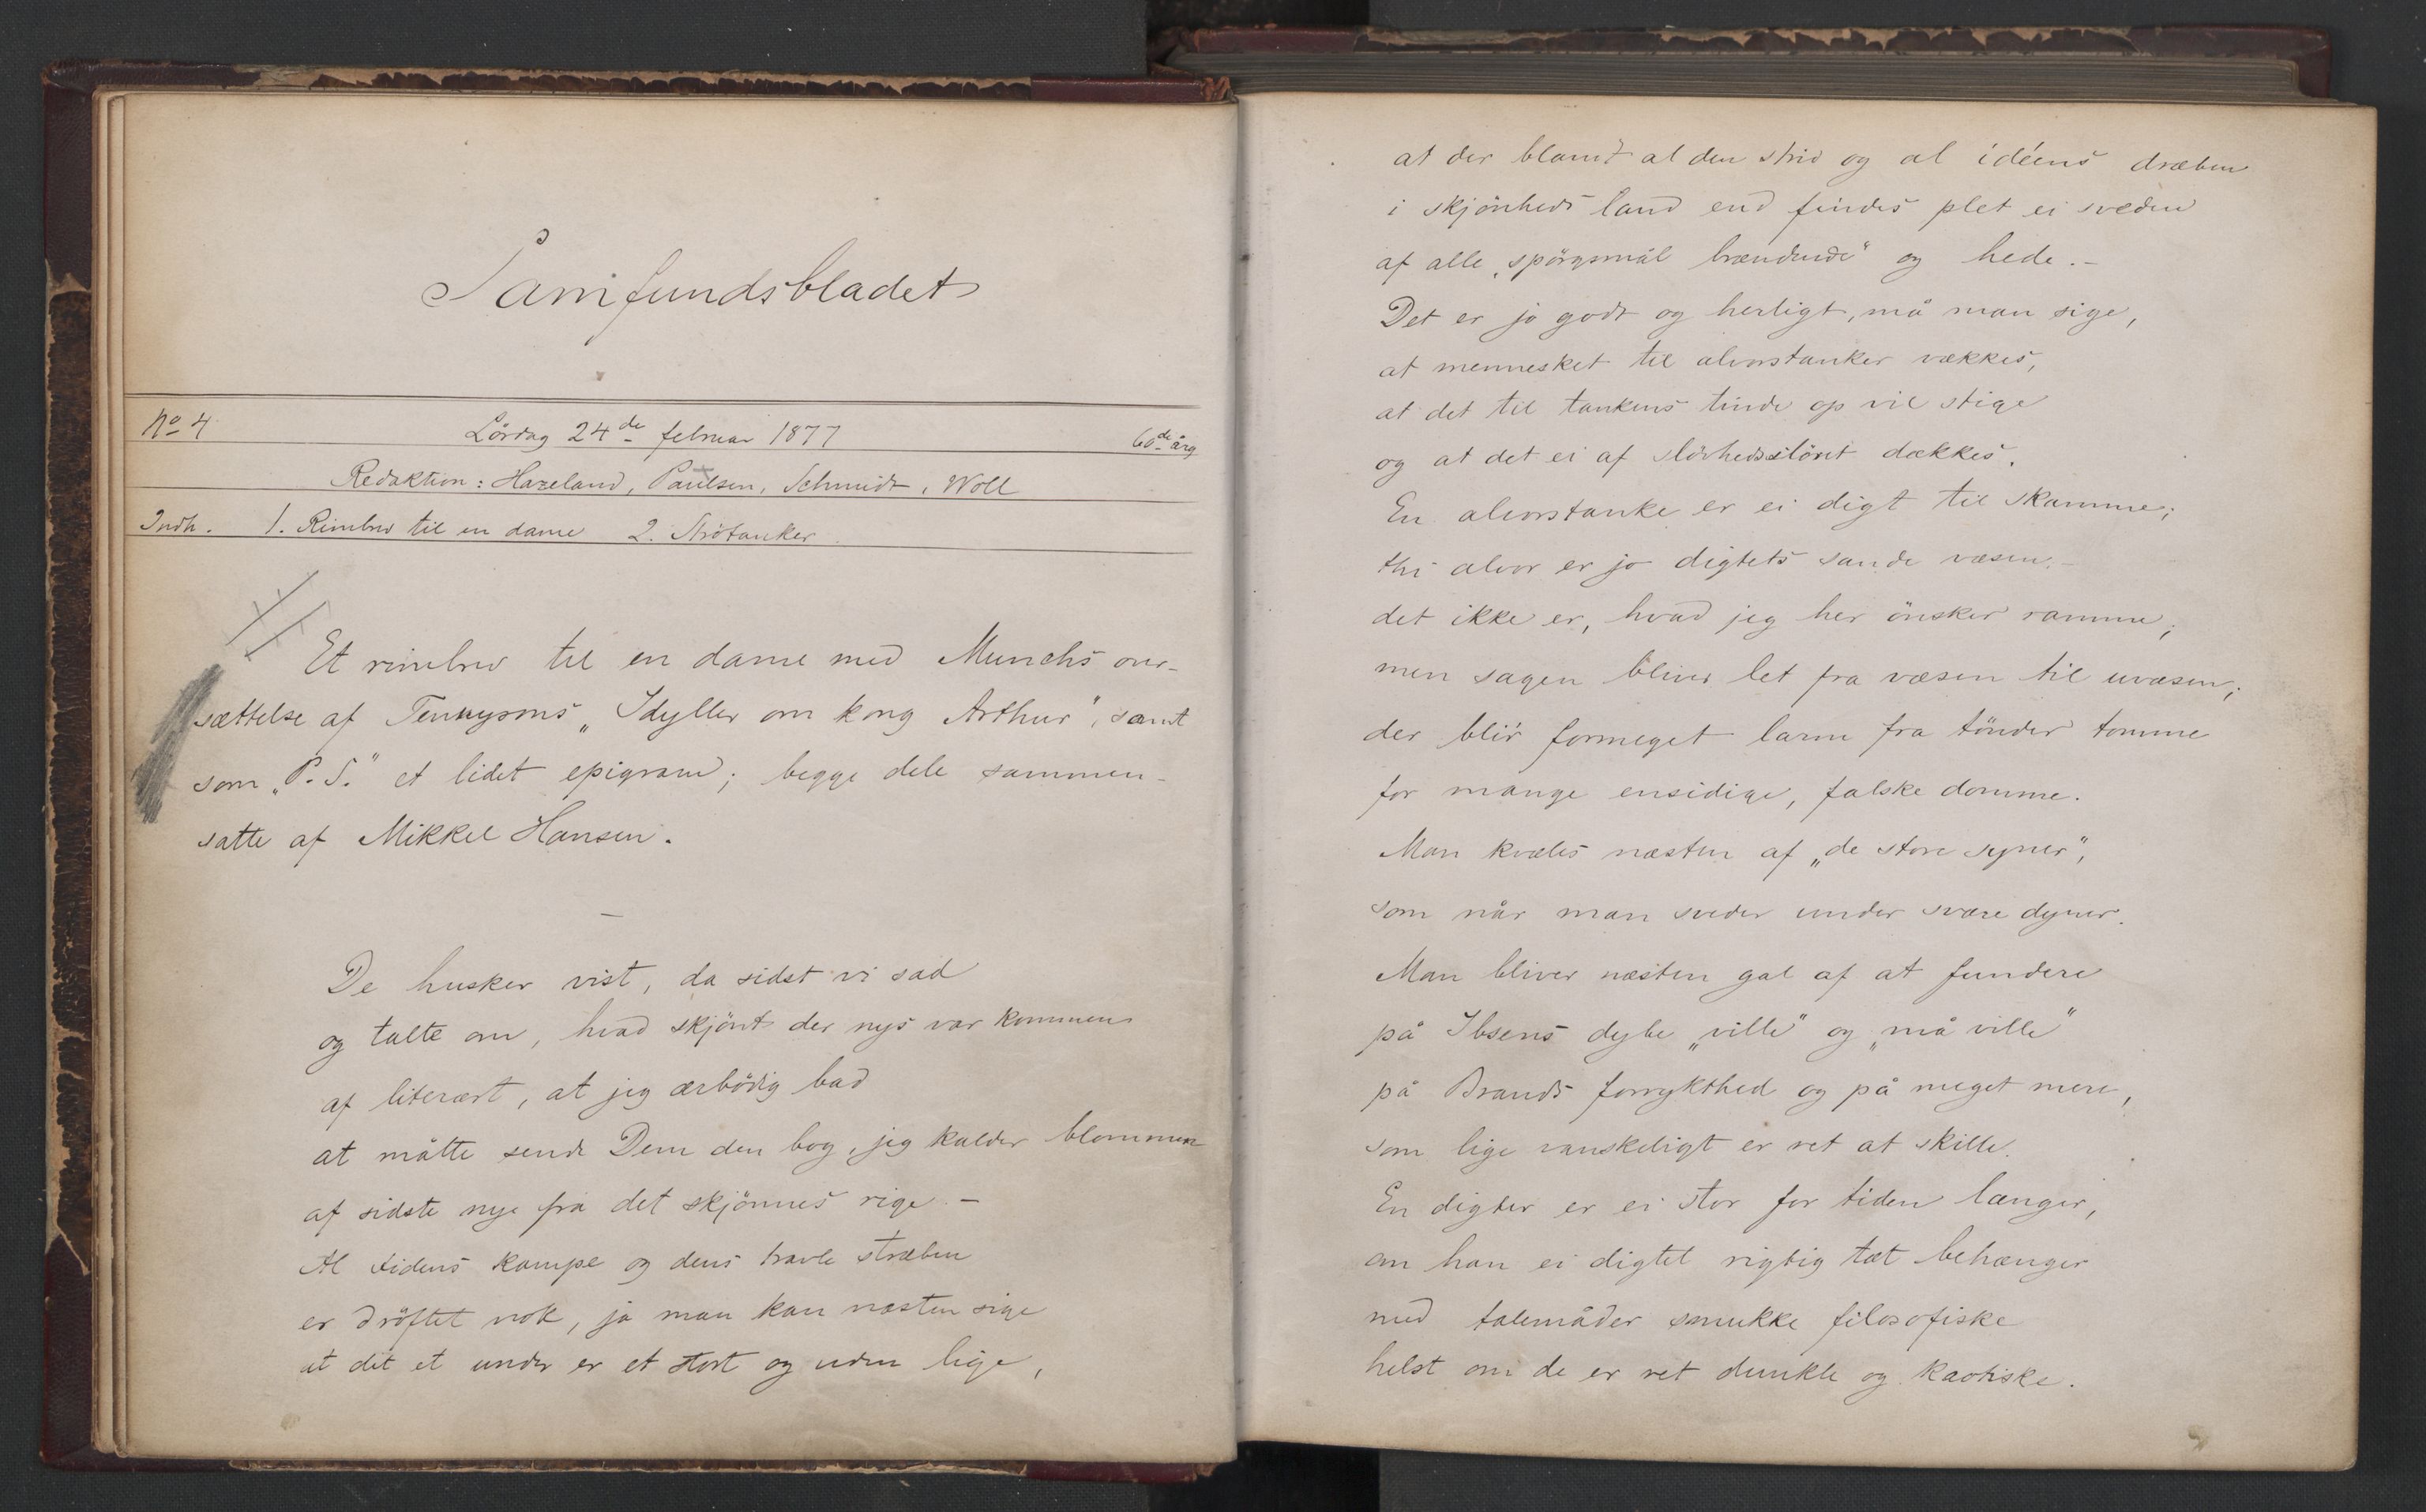 Samfundsbladet
No 4 Lördag 24de februar 1877 60de årg
Redaktion: Hazeland, Paulsen, Schmidt, Woll
Indh. 1. Rimbrev til en dame 2. Strötanker.
1/
Et rimbrev til en dame med Munchs over-
sættelse af Tennysons „Idyller om kong Arthur", samt
som „P.S." et lidet epigram; begge dele sammen-
satte af Mikkel Hansen.
De husker vist, da sidst vi sad
og talte om, hvad skjönt der nys var kommen
af literært, at jeg ærbödig bad
at måtte sende Dem den bog, jeg kalder blommen
af sidste nye fra det skjönnes rige. –
Al tidens kampe og dens travle stræben
er dröftet nok, ja man kan næsten sige
at det et under er et stort og uden lige,
at der blandt al den strid og al idéens dræben
i skjönheds land end findes plet ei sveden
af alle „spörgsmål brændende" og hede. –
Det er jo godt og herligt, må man sige,
at mennesket til alvorstanker vækkes,
at det til tankens tinde op vil stige
og at det ei af slövhedsslöret dækkes.
En alvorstanke er ei digt til skamme;
thi alvor er jo digtets sande væsen, –
det ikke er, hvad jeg her önsker ramme;
men sagen bliver let fra væsen til uvæsen;
der blir formeget larm fra tönder tomme
for mange ensidige, falske domme.
Man kvæles næsten af „de store syner",
som når man sveder under svære dyner.
Man bliver næsten gal af at fundere
på Ibsens dybe „ville" og „må ville"
på Brands forrykthed og på meget mere,
som lige vanskeligt er ret at skille.
En digter er ei stor for tiden længer,
om han ei digtet rigtig tæt behænger
med talemåder smukke filosofiske
helst om de er ret dunkle og kaotiske.